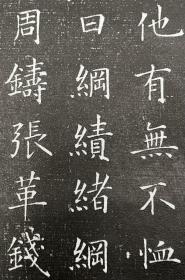 他有無不恤
曰綱績緒綱
周鑄張革錢